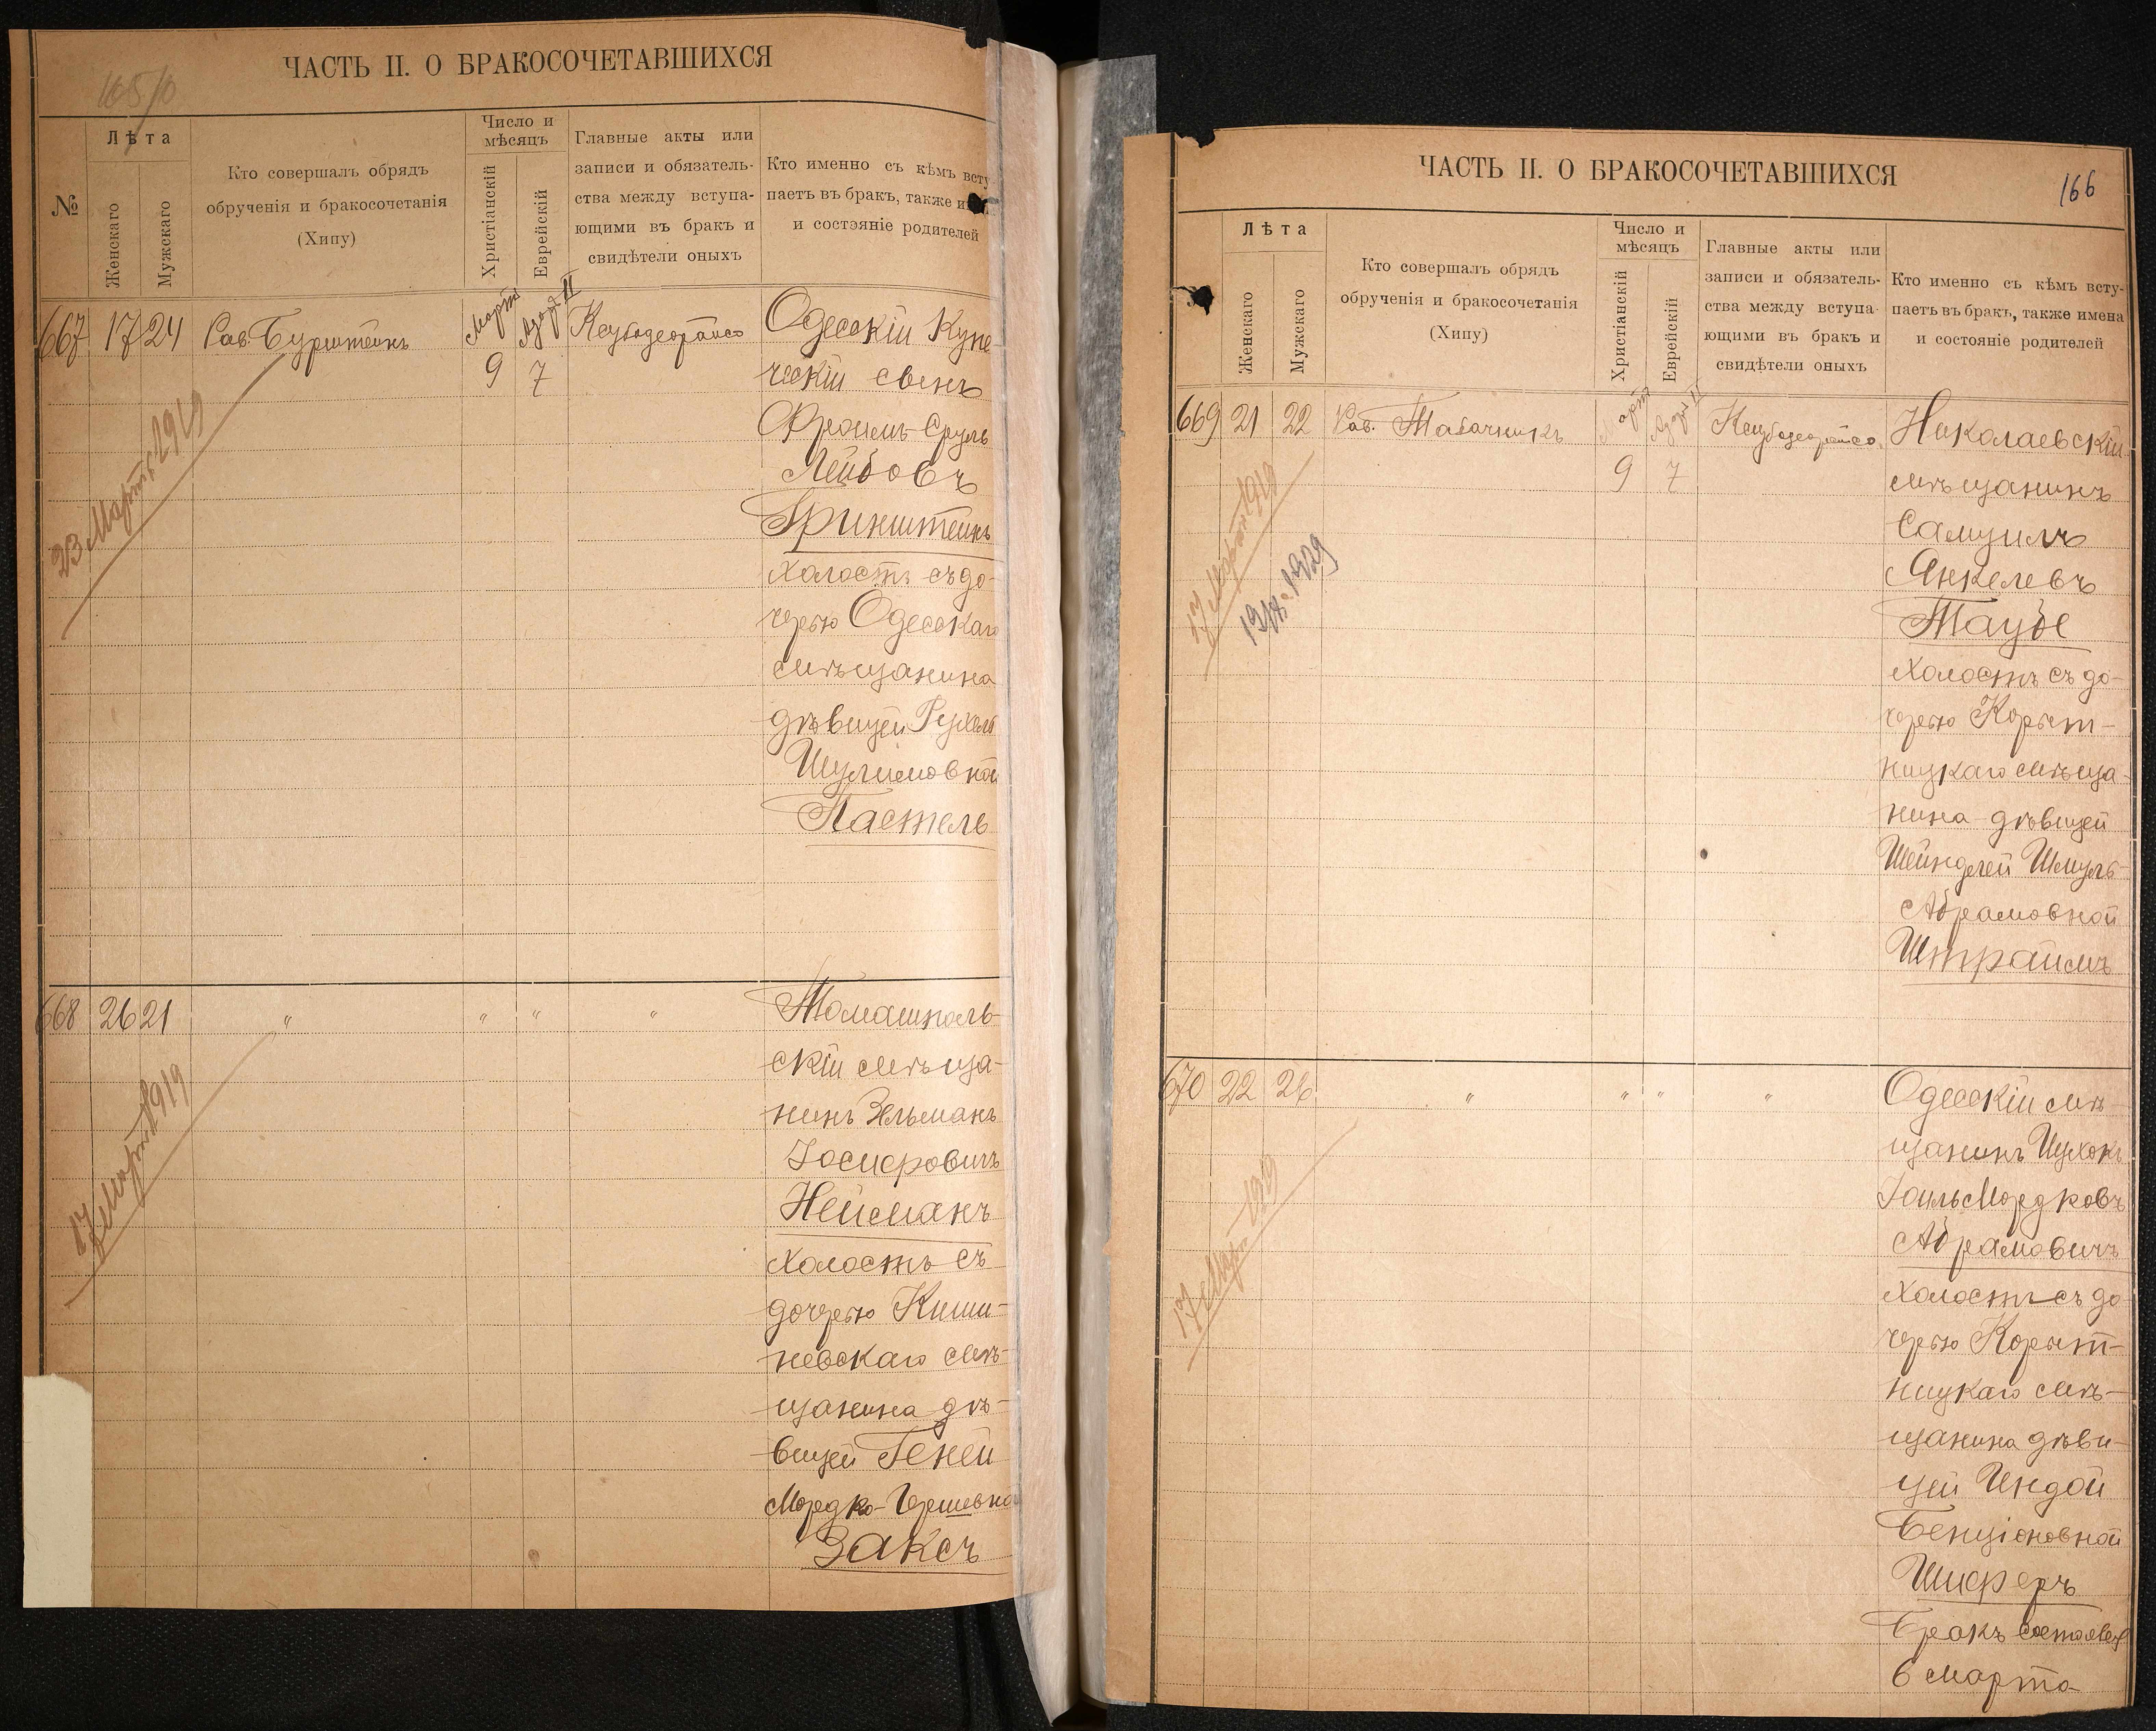 ЧАСТЬ II. О БРАКОСОЧЕТАВШИХСЯ
№
Лѣта
Женскаго
Мужскаго
Кто совершалъ обрядъ
обрученія и бракосочетанія
(Хипу)
Число и
мѣсяцъ
Христіанскій
Еврейскій
Главные акты или
записи и обязатель-
ства между вступа-
ющими въ бракъ и
свидѣтели оныхъ
Кто именно съ кѣмъ всту
паетъ въ бракъ, также и
и состояніе родителей
667 17 24 Рав. Бурштейнъ
Марта Адаръ II
9 7
Одесскій Купе-
ческій сынъ
Фроимъ-Сруль
Лейбовъ
Гринштейнъ
холостъ съ до-
черью Одесскаго
мѣщанина
дѣвицей Рухель
Шулимовной
Пастель
23 Марта 1919
668 26 21 " " " "
Томашполь-
скій мѣща-
нинъ Зельманъ
Іосифовичъ
Нейманъ
холостъ съ
дочерью Киши-
невскаго мѣ-
щанина дѣ-
вицей Геней
Мордко-Гершевной
Заксъ
17 Марта 1919
ЧАСТЬ II. О БРАКОСОЧЕТАВШИХСЯ
166
Лѣта
Женскаго
Мужскаго
Кто совершалъ обрядъ
обрученія и бракосочетанія
(Хипу)
Число и
мѣсяцъ
Христіанскій
Еврейскій
Главные акты или
записи и обязатель-
ства между вступа-
ющими въ бракъ и
свидѣтели оныхъ
Кто именно съ кѣмъ всту-
паетъ въ бракъ, также имена
и состояніе родителей
669 21 22 Рав. Табачникъ
Марта Адаръ II
9 7
Николаевскій
мѣщанинъ
Самуилъ
Янкелевъ
Таубе
холостъ съ до-
черью Корыт-
ницкаго мѣща-
нина дѣвицей
Шейнделей Шмуль-
Абрамовной
Штраймъ
17 Марта 1919
1929
670 22 26 " " " "
Одесскій мѣ-
щанинъ Ицхокъ
Іоиль Мордковъ
Абрамовичъ
холостъ съ до-
черью Корыт-
ницкаго мѣ-
щанина дѣви-
цей Индой
Бенціоновной
Шиферъ
Бракъ состоялся
6 Марта
17 Марта